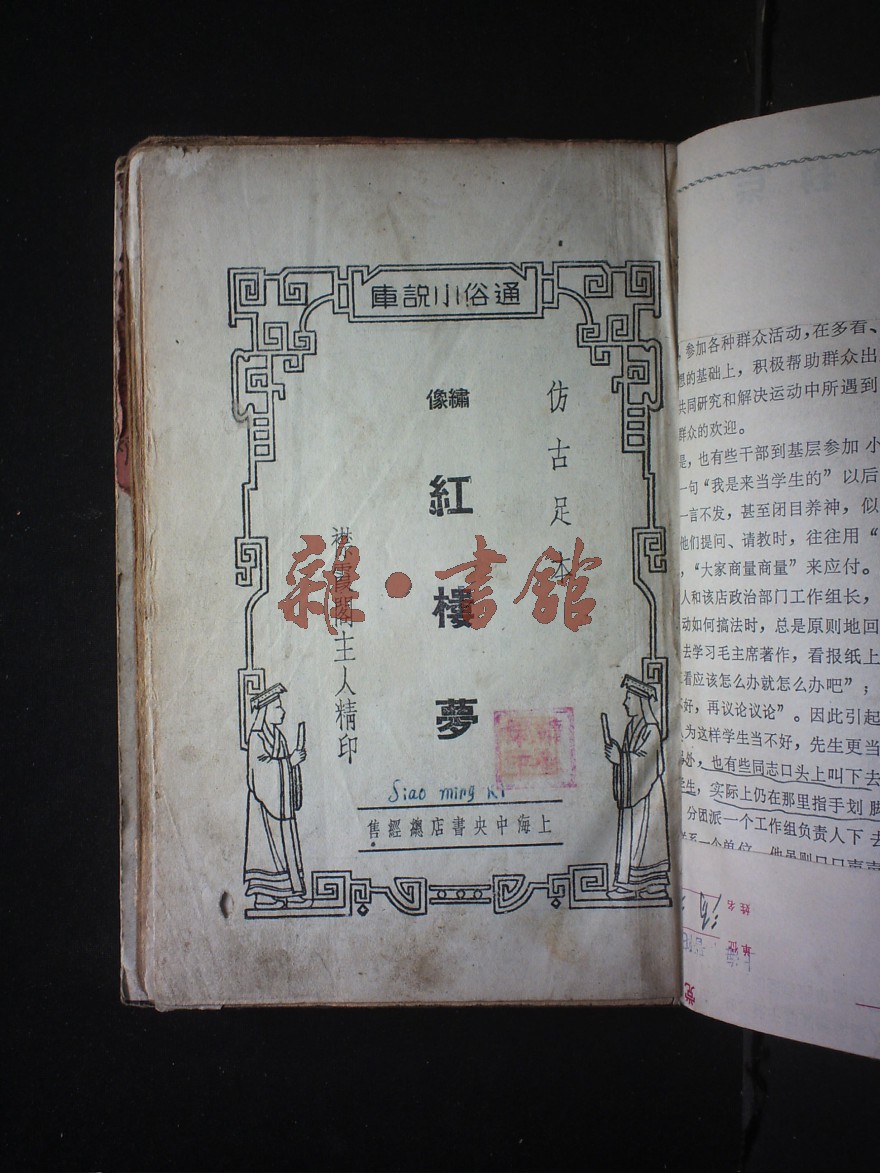 通俗小說庫
仿古足本
繡像
紅樓夢
襟霞閣主人精印
Siao ming Ki
上海中央書店總經售
雜·書館
，参加各种群众活动，在多看、
想的基础上，积极帮助群众出
共同研究和解决运动中所遇到
群众的欢迎。
是，也有些干部到基层参加小
一句“我是来当学生的”以后
一言不发，甚至闭目养神，似
他们提问、请教时，往往用“
，“大家商量商量”来应付。
人和该店政治部门工作组长，
动如何搞法时，总是原则地回
去学习毛主席著作，看报纸上
看应该怎么办就怎么办吧”；
不好，再议论议论”。因此引起
人为这样学生当不好，先生更当
处，也有些同志口头上叫下去
学生，实际上仍在那里指手划脚
分团派一个工作组负责人下去
系一个单位，他虽则口口声声
姓名
单位
党